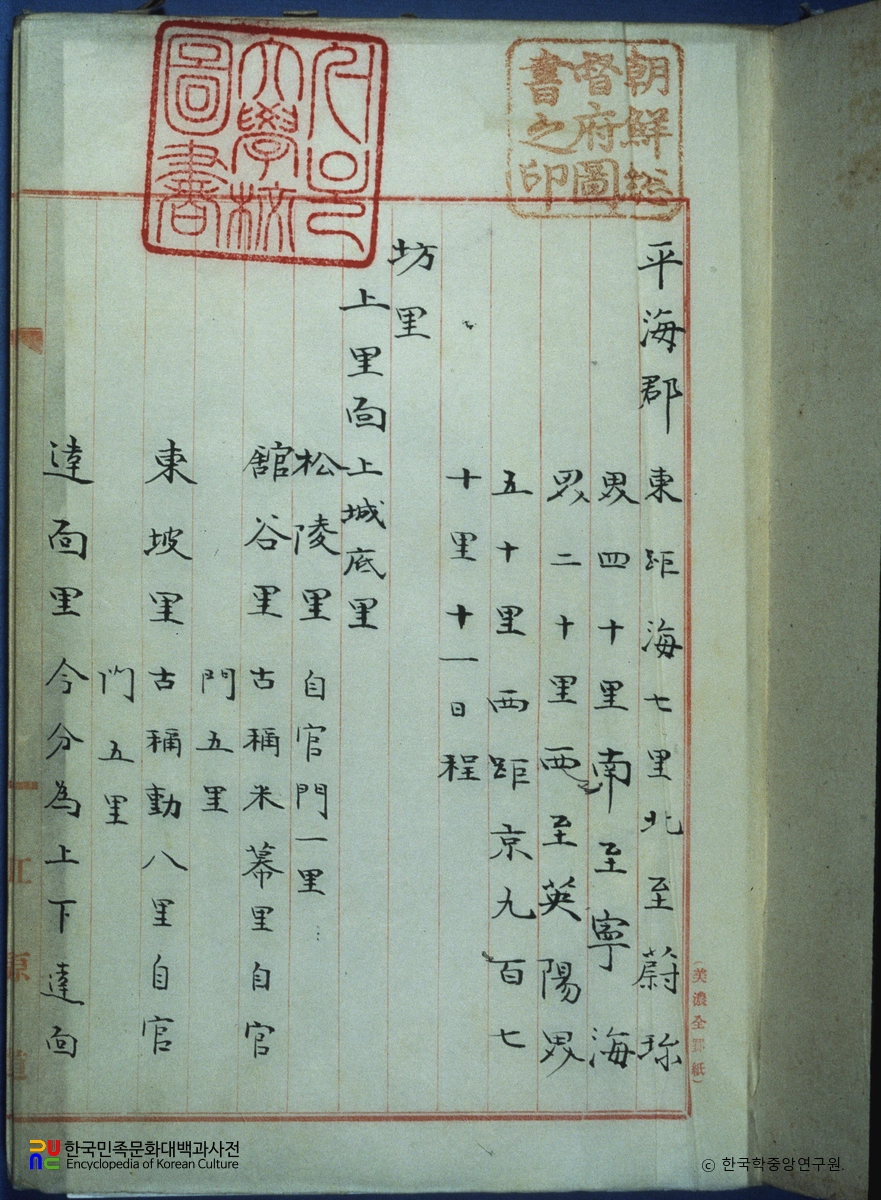 朝鮮総
督府圖
書之印
서울
大學校
圖書
平海郡 東距海七里北至蔚珍
界四十里南至寧海
界二十里西至英陽界
五十里西距京九百七
十里十一日程
坊里
上里面上城底里
松陵里 自官門一里
舘谷里 古稱米幕里自官
門五里
東坡里 古稱動八里自官
門五里
達面里 今分為上下達面
(美濃全罫紙)
江原道
한국민족문화대백과사전
Encyclopedia of Korean Culture
ⓒ 한국학중앙연구원.